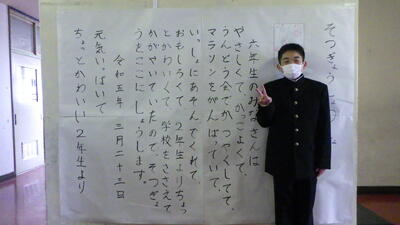 そつぎょう
六年生のみなさんは
やさしくて、かっこよくて、
うんどう会でかつやくしてて、
マラソンをがんばっていて、
いっしょにあそんでくれて
おもしろくて、２年生よりちょっ
とかわいくて、学校をささえて
かがやいていたので、そつぎょ
うをここに しょうします。
令和五年 三月二十三日
元気いっぱいで
ちょっとかわいい２年生より